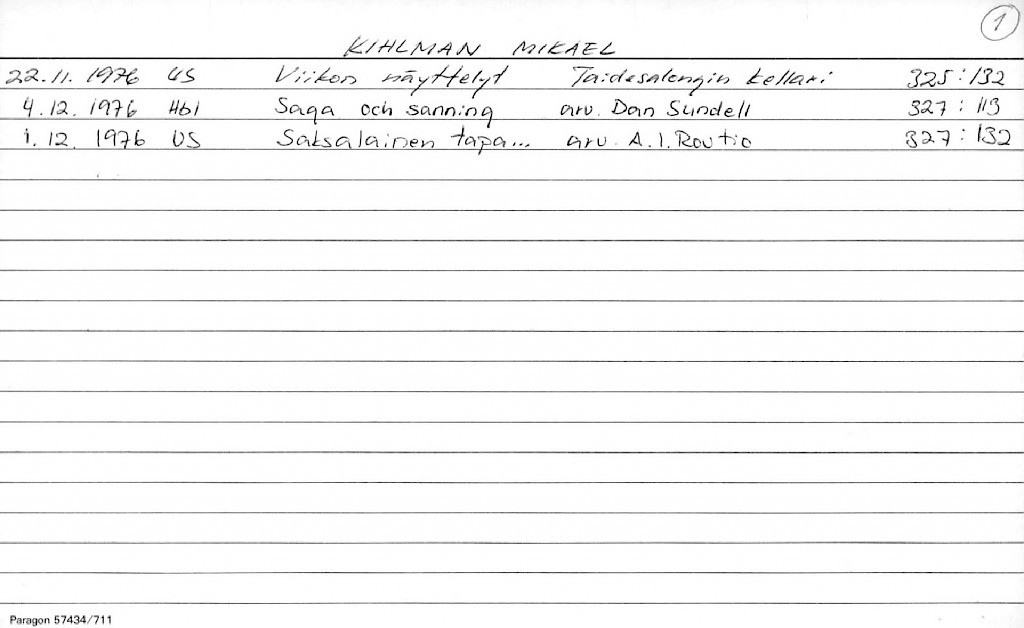 1
KIHLMAN MIKAEL
22.11. 1976 US Viikon näyttelyt Taidesalongin kellari 325:132
4.12. 1976 Hbl Saga och sanning arv. Dan Sundell 327:113
1.12. 1976 US Saksalainen tapa... arv. A.I. Routio 327:132
Paragon 57434/711